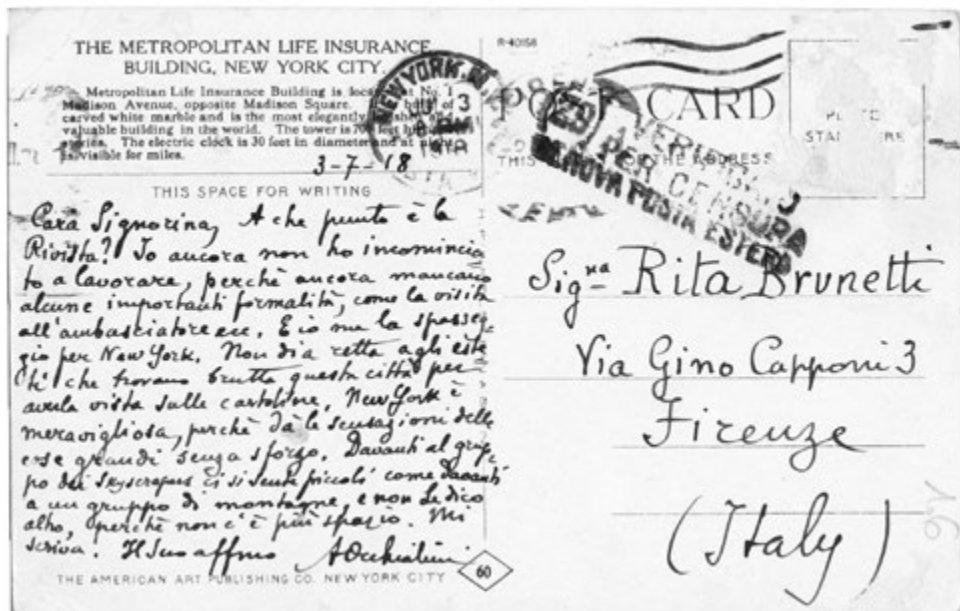 THE METROPOLITAN LIFE INSURANCE
BUILDING, NEW YORK CITY.
Metropolitan Life Insurance Building is at No. 1
Madison Avenue, opposite Madison Square. of
carved white marble and is the most elegantly and
valuable building in the world. The tower is 700 feet
The electric clock is 30 feet in diameter and at
is visible for miles.
3-7-18
THIS SPACE FOR WRITING
Cara Signorina, A che punto è la
Rivista? Io ancora non ho incomincia
to a lavorare, perchè ancora mancano
alcune importanti formalità, come la visita
all'ambasciatore ecc. E io me la passeg
gio per New York. Non dia retta agli este
ti che trovano brutta questa città per
averla vista sulle cartoline. New York è
meravigliosa, perchè dà le sensazioni delle
cose grandi senza sforzo. Davanti al grup
po dei skyscrapers ci si sente piccoli come davanti
a un gruppo di montagne, e non Le dico
altro, perchè non c'è più spazio. Mi
scriva. Il Suo affmo AOcchialini
THE AMERICAN ART PUBLISHING CO. NEW YORK CITY
60
R-40158
NEW YORK, N.
3
POST CARD
THIS FOR THE ADDRESS
(29) VERIFICATO
PER CENSURA
GENOVA POSTA ESTERA
Sig.na Rita Brunetti
Via Gino Capponi 3
Firenze
(Italy)